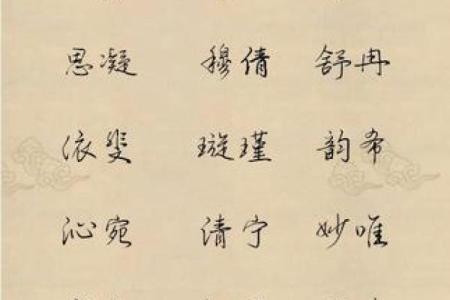 思凝 穆倩 舒冉
依斐 璇瑾 韵希
沁宛 清宁 妙唯